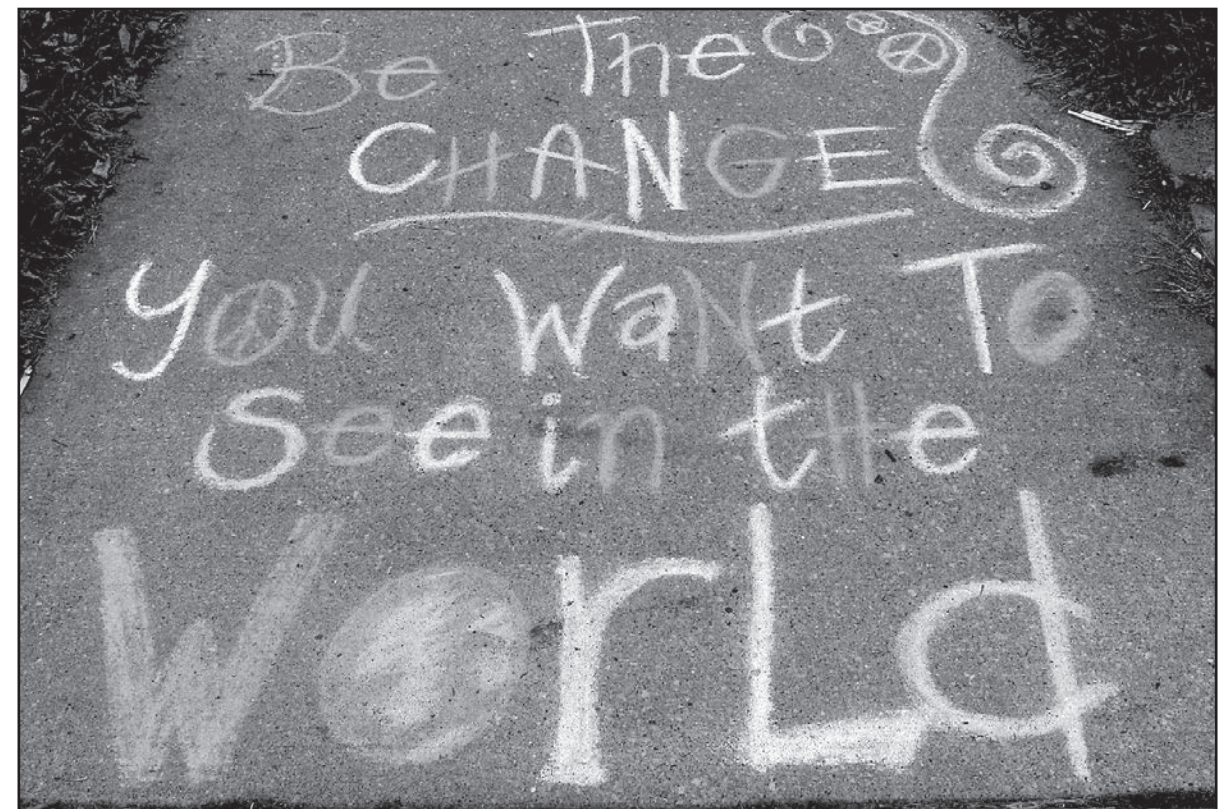 Be The
CHANGE
You WaNt To
See in tHe
WorLd